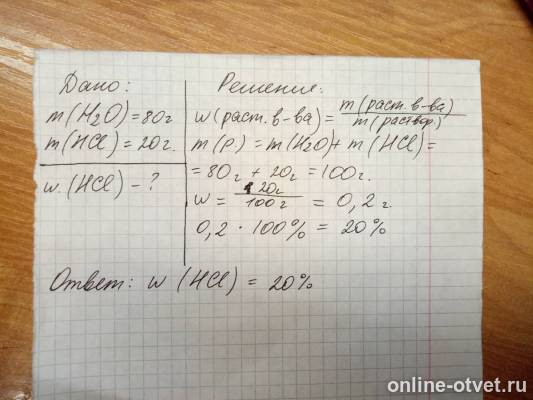 Дано:
m(H₂O)=80г
m(HCl)=20г.
w(HCl)-?
Решение:
w(раст.в-ва)= m(раст.в-ва)
m(раствор)
m(р.)=m(H₂O)+m(HCl)=
=80г+20г=100г.
w= 20г = 0,2г.
100г
0,2·100%=20%
Ответ: w(HCl)=20%
online-otvet.ru